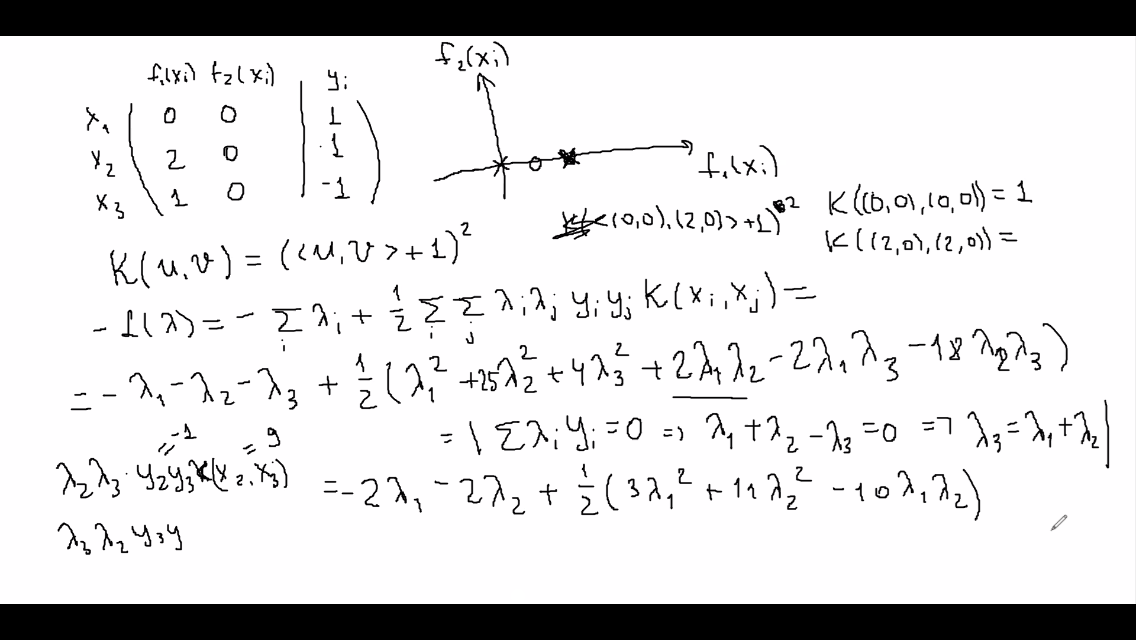 f₁(xᵢ) f₂(xᵢ) | yᵢ
x₁ ( 0 0 | 1 )
x₂ ( 2 0 | 1 )
x₃ ( 1 0 | -1 )
f₂(xᵢ)
f₁(xᵢ)
<(0,0),(2,0)>+1)²
K((0,0),(0,0))=1
K((2,0),(2,0))=
K(u,v)=(<u,v>+1)²
-L(λ)=-∑ᵢ λᵢ + 1/2 ∑ᵢ ∑ⱼ λᵢλⱼ yᵢyⱼ K(xᵢ,xⱼ)=
=-λ₁-λ₂-λ₃+1/2(λ₁²+25λ₂²+4λ₃²+2λ₁λ₂-2λ₁λ₃-18λ₂λ₃)
=|∑λᵢyᵢ=0 => λ₁+λ₂-λ₃=0 => λ₃=λ₁+λ₂|
=-1 =9
λ₂λ₃·y₂y₃K(x₂,x₃)
=-2λ₁-2λ₂+1/2(3λ₁²+11λ₂²-10λ₁λ₂)
λ₃λ₂y₃y